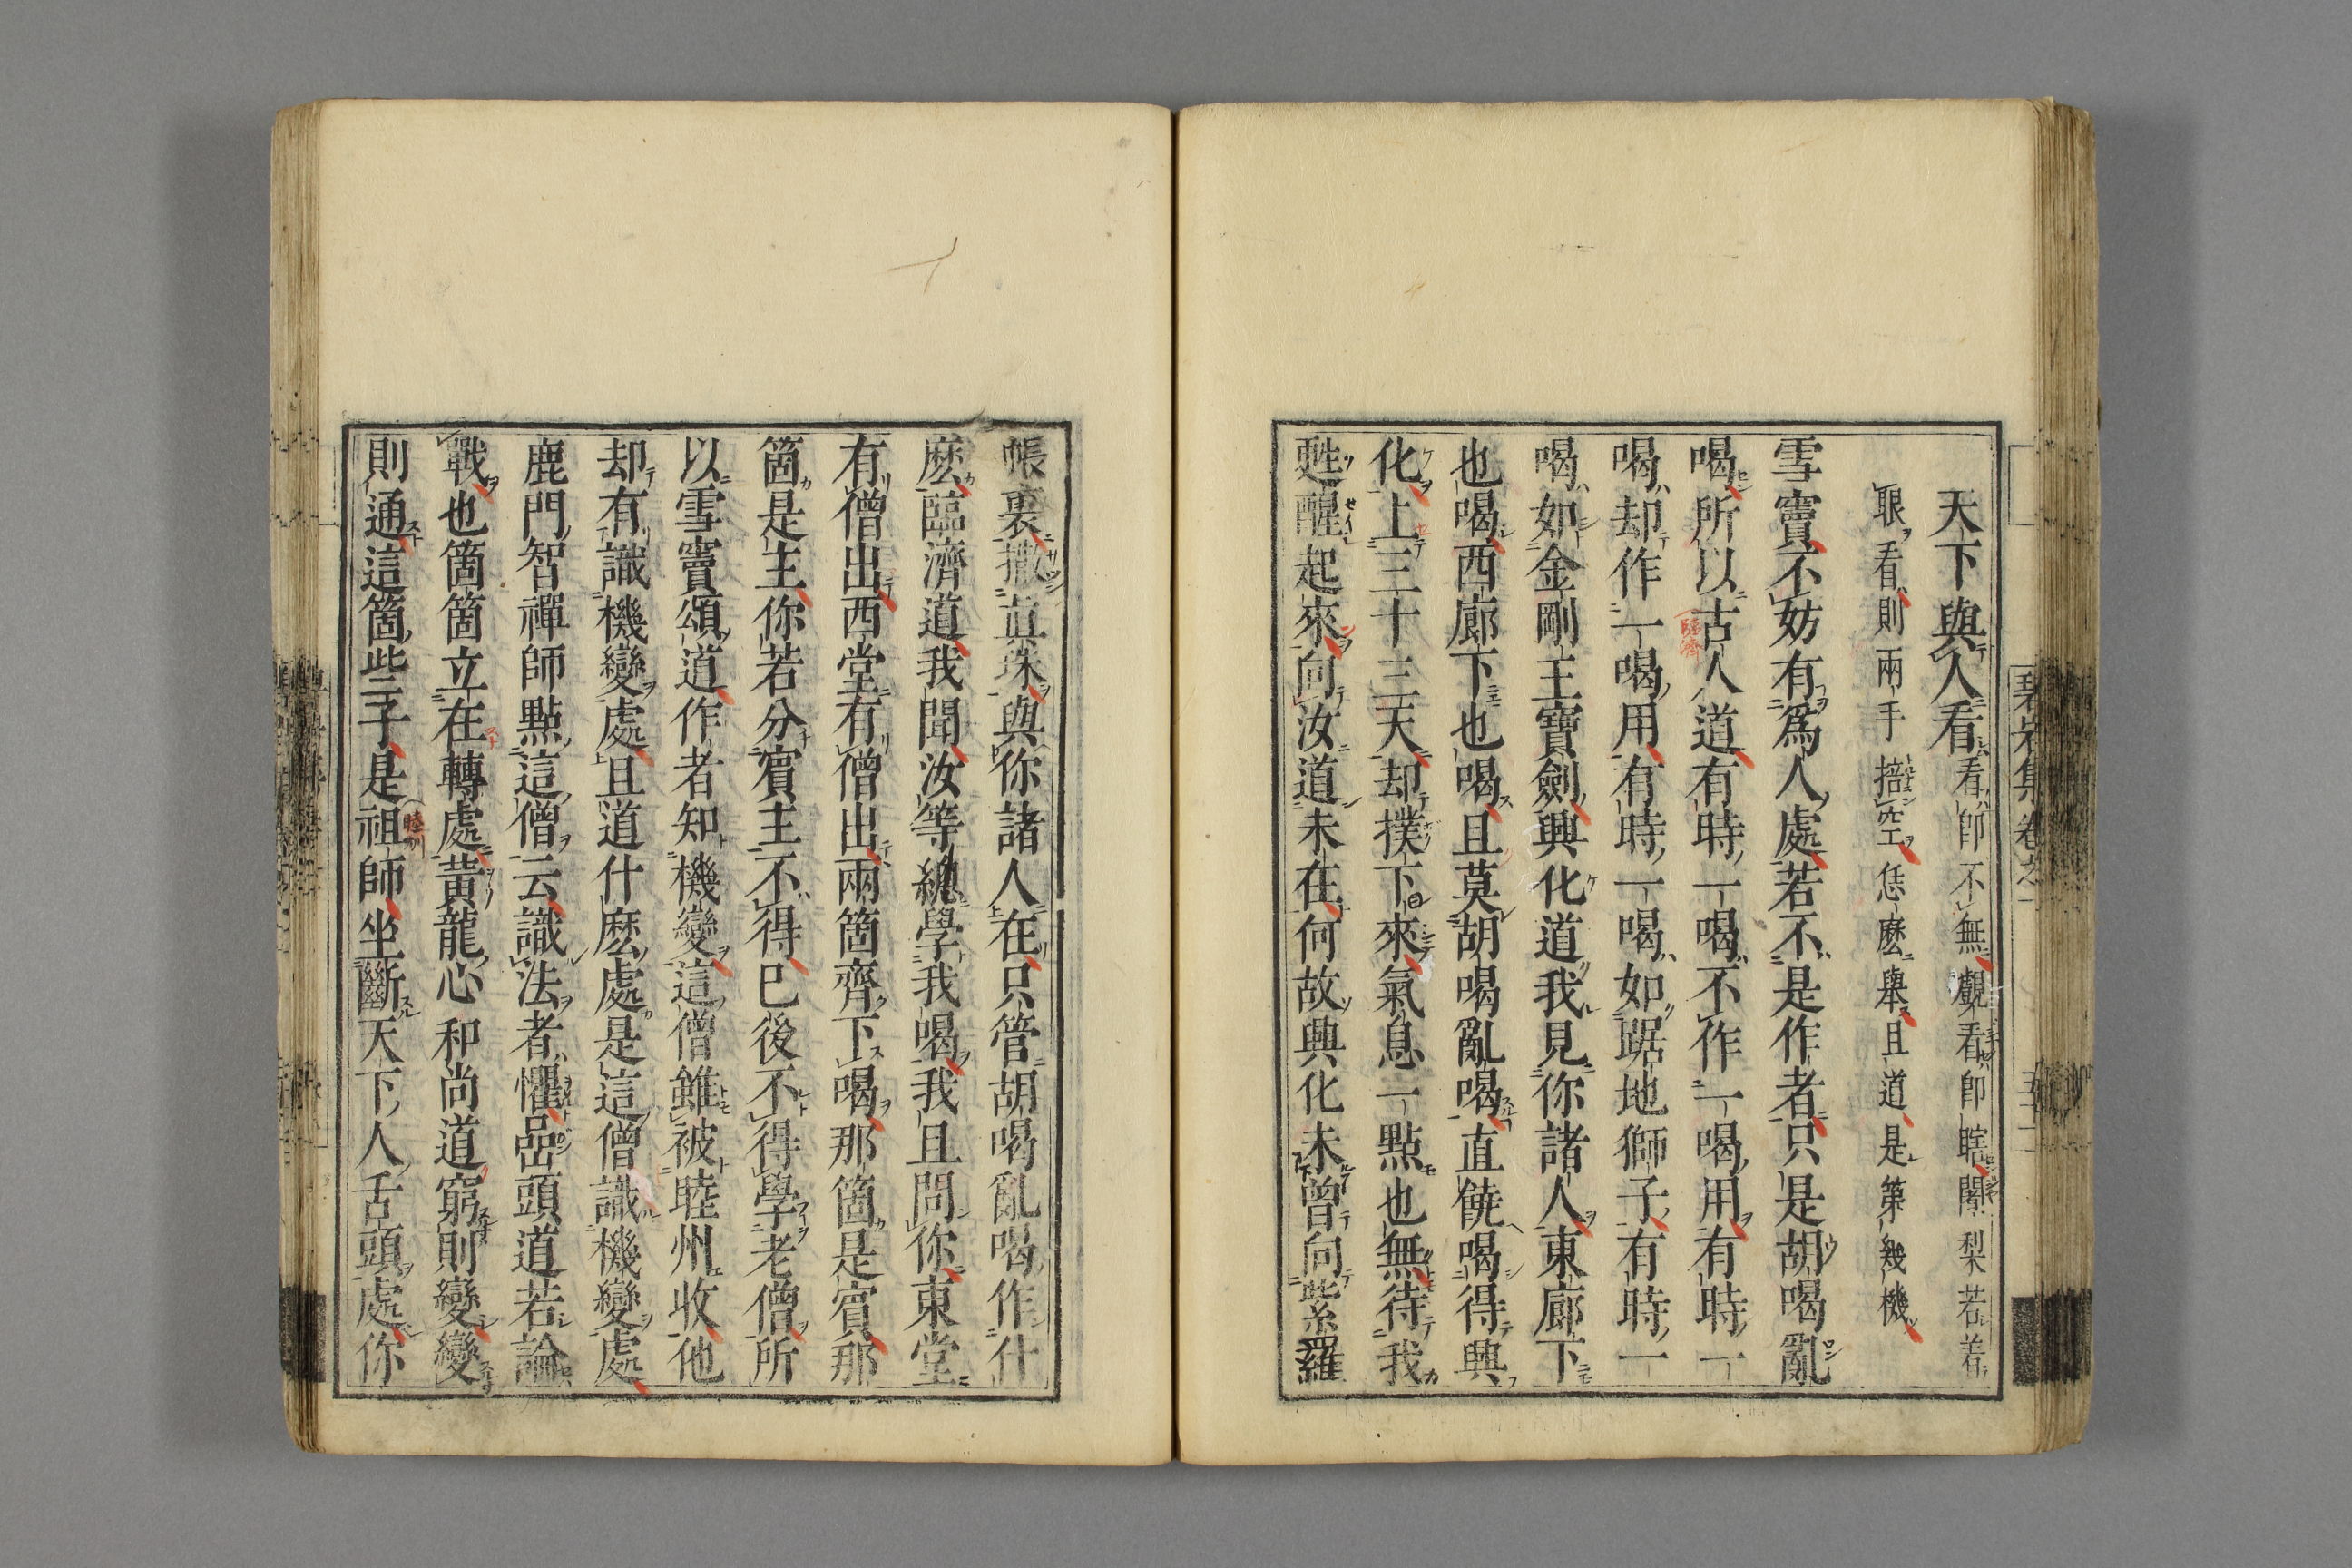 天下與人看看即不無覷看即瞎闍梨若着
眼看則兩手掊空恁麽舉且道是第幾機
雪竇不妨有爲人處若不是作者只是胡喝亂
喝所以古人道有時一喝不作一喝用有時一
臨濟
喝却作一喝用有時一喝如踞地獅子有時一
喝如金剛王寶劍興化道我見你諸人東廊下
也喝西廊下也喝且莫胡喝亂喝直饒喝得興
化上三十三天却撲下來氣息一點也無待我
甦醒起來向汝道未在何故興化未曾向紫羅
碧岩集卷之
帳裏撒眞珠與你諸人在只管胡喝亂喝作什
麽臨濟道我聞汝等總學我喝我且問你東堂
有僧出西堂有僧出兩箇齊下喝那箇是賓那
箇是主你若分賓主不得已後不得學老僧所
以雪竇頌道作者知機變這僧雖被睦州收他
却有識機變處且道什麽處是這僧識機變處
鹿門智禪師點這僧云識法者懼嵒頭道若論
戰也箇箇立在轉處黃龍心和尚道窮則變變
則通這箇些子是祖師坐斷天下人舌頭處你
睦州